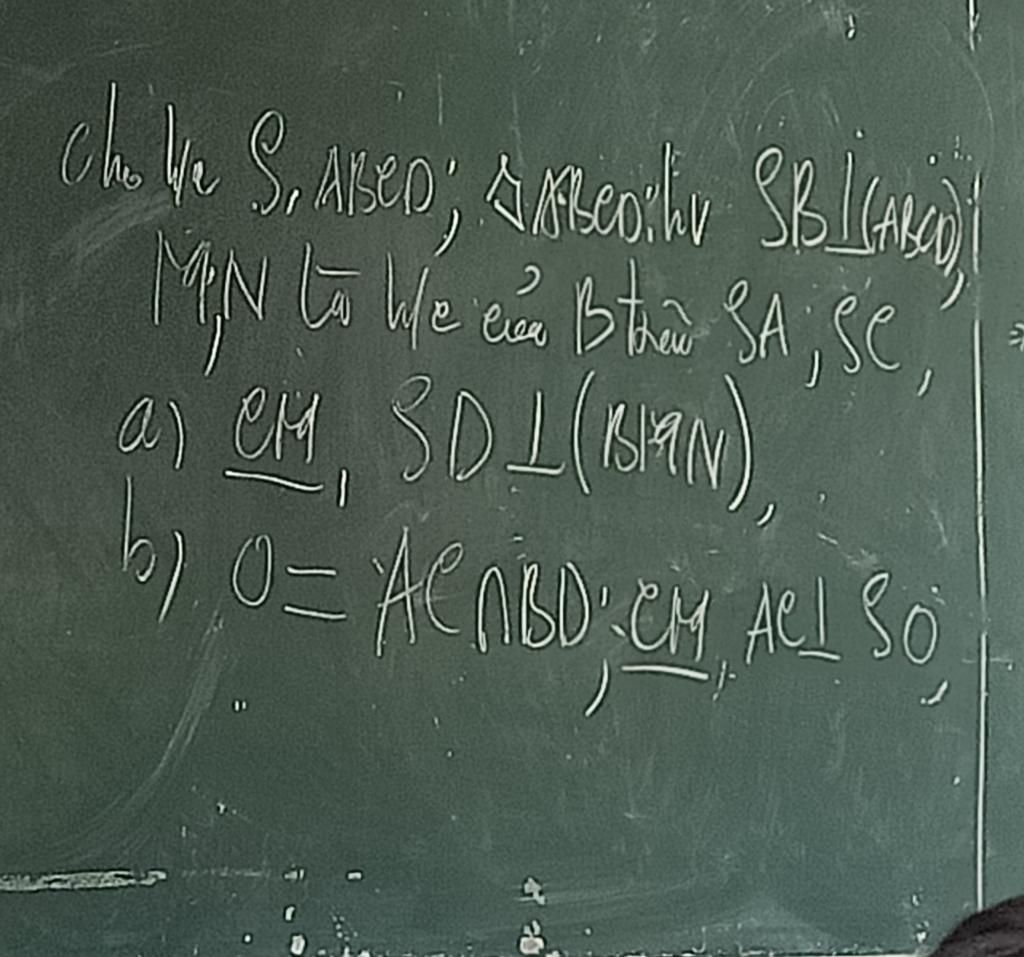 Cho h/c S.ABCD; ◊ABCD: hv SB⊥(ABCD);
M,N là h/c của B trên SA; SC.
a) CM. SD⊥(BMN),
b) O = AC∩BD; CM, AC⊥SO